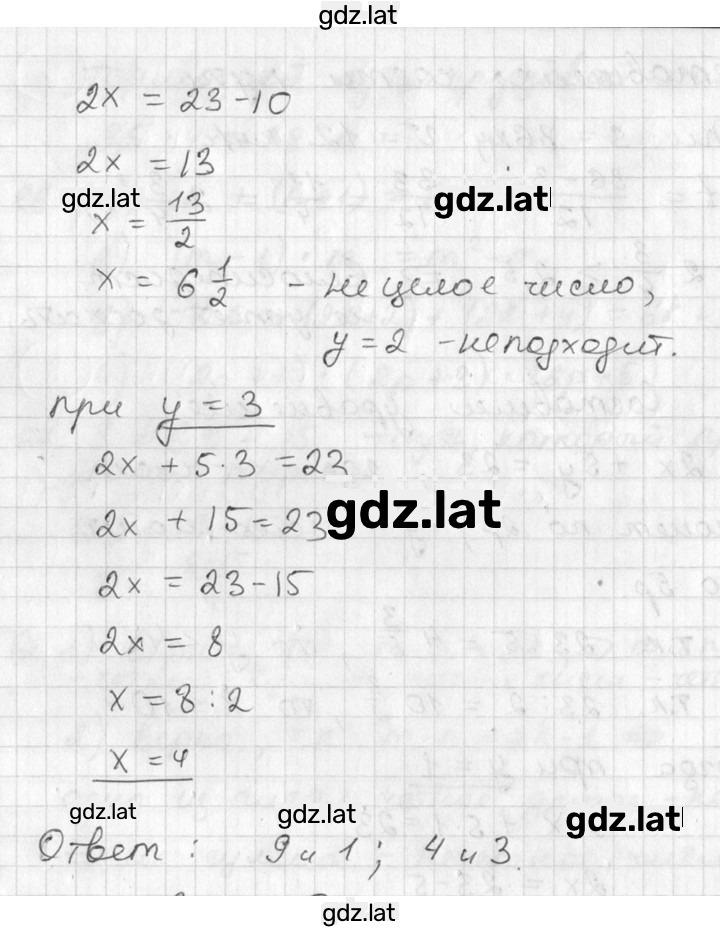 gdz.lat
2x = 23-10
2x = 13
gdz.lat gdz.lat
x = 13/2
x = 6 1/2 - не целое число,
y = 2 - не подходит.
при y = 3
2x + 5·3 = 22
2x + 15 = 23 gdz.lat
2x = 23-15
2x = 8
x = 8 : 2
x = 4
gdz.lat gdz.lat gdz.lat
Ответ : 9 и 1 ; 4 и 3.
gdz.lat